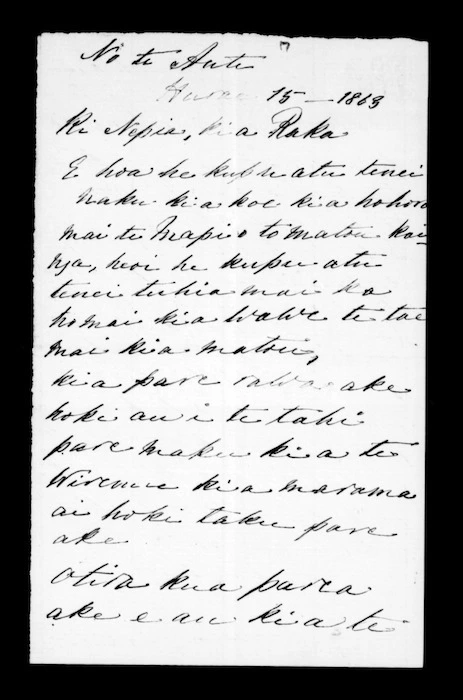 No te Aute
15 - 1863
Ki Nepia, kia Raka
E hoa he kupu atu tenei
naku kia koe kia hohoro
mai te Mapi o to matou kai-
nga, heoi he kupu atu
tenei tuhia mai ka
homai kia wawe te tae
mai kia matou,
kia pare rawa ake
hoki au i te tahi
pare maku kia te
Wiremu kia marama
ai hoki taku pare
ake
Otira kua parea
ake e au kia te